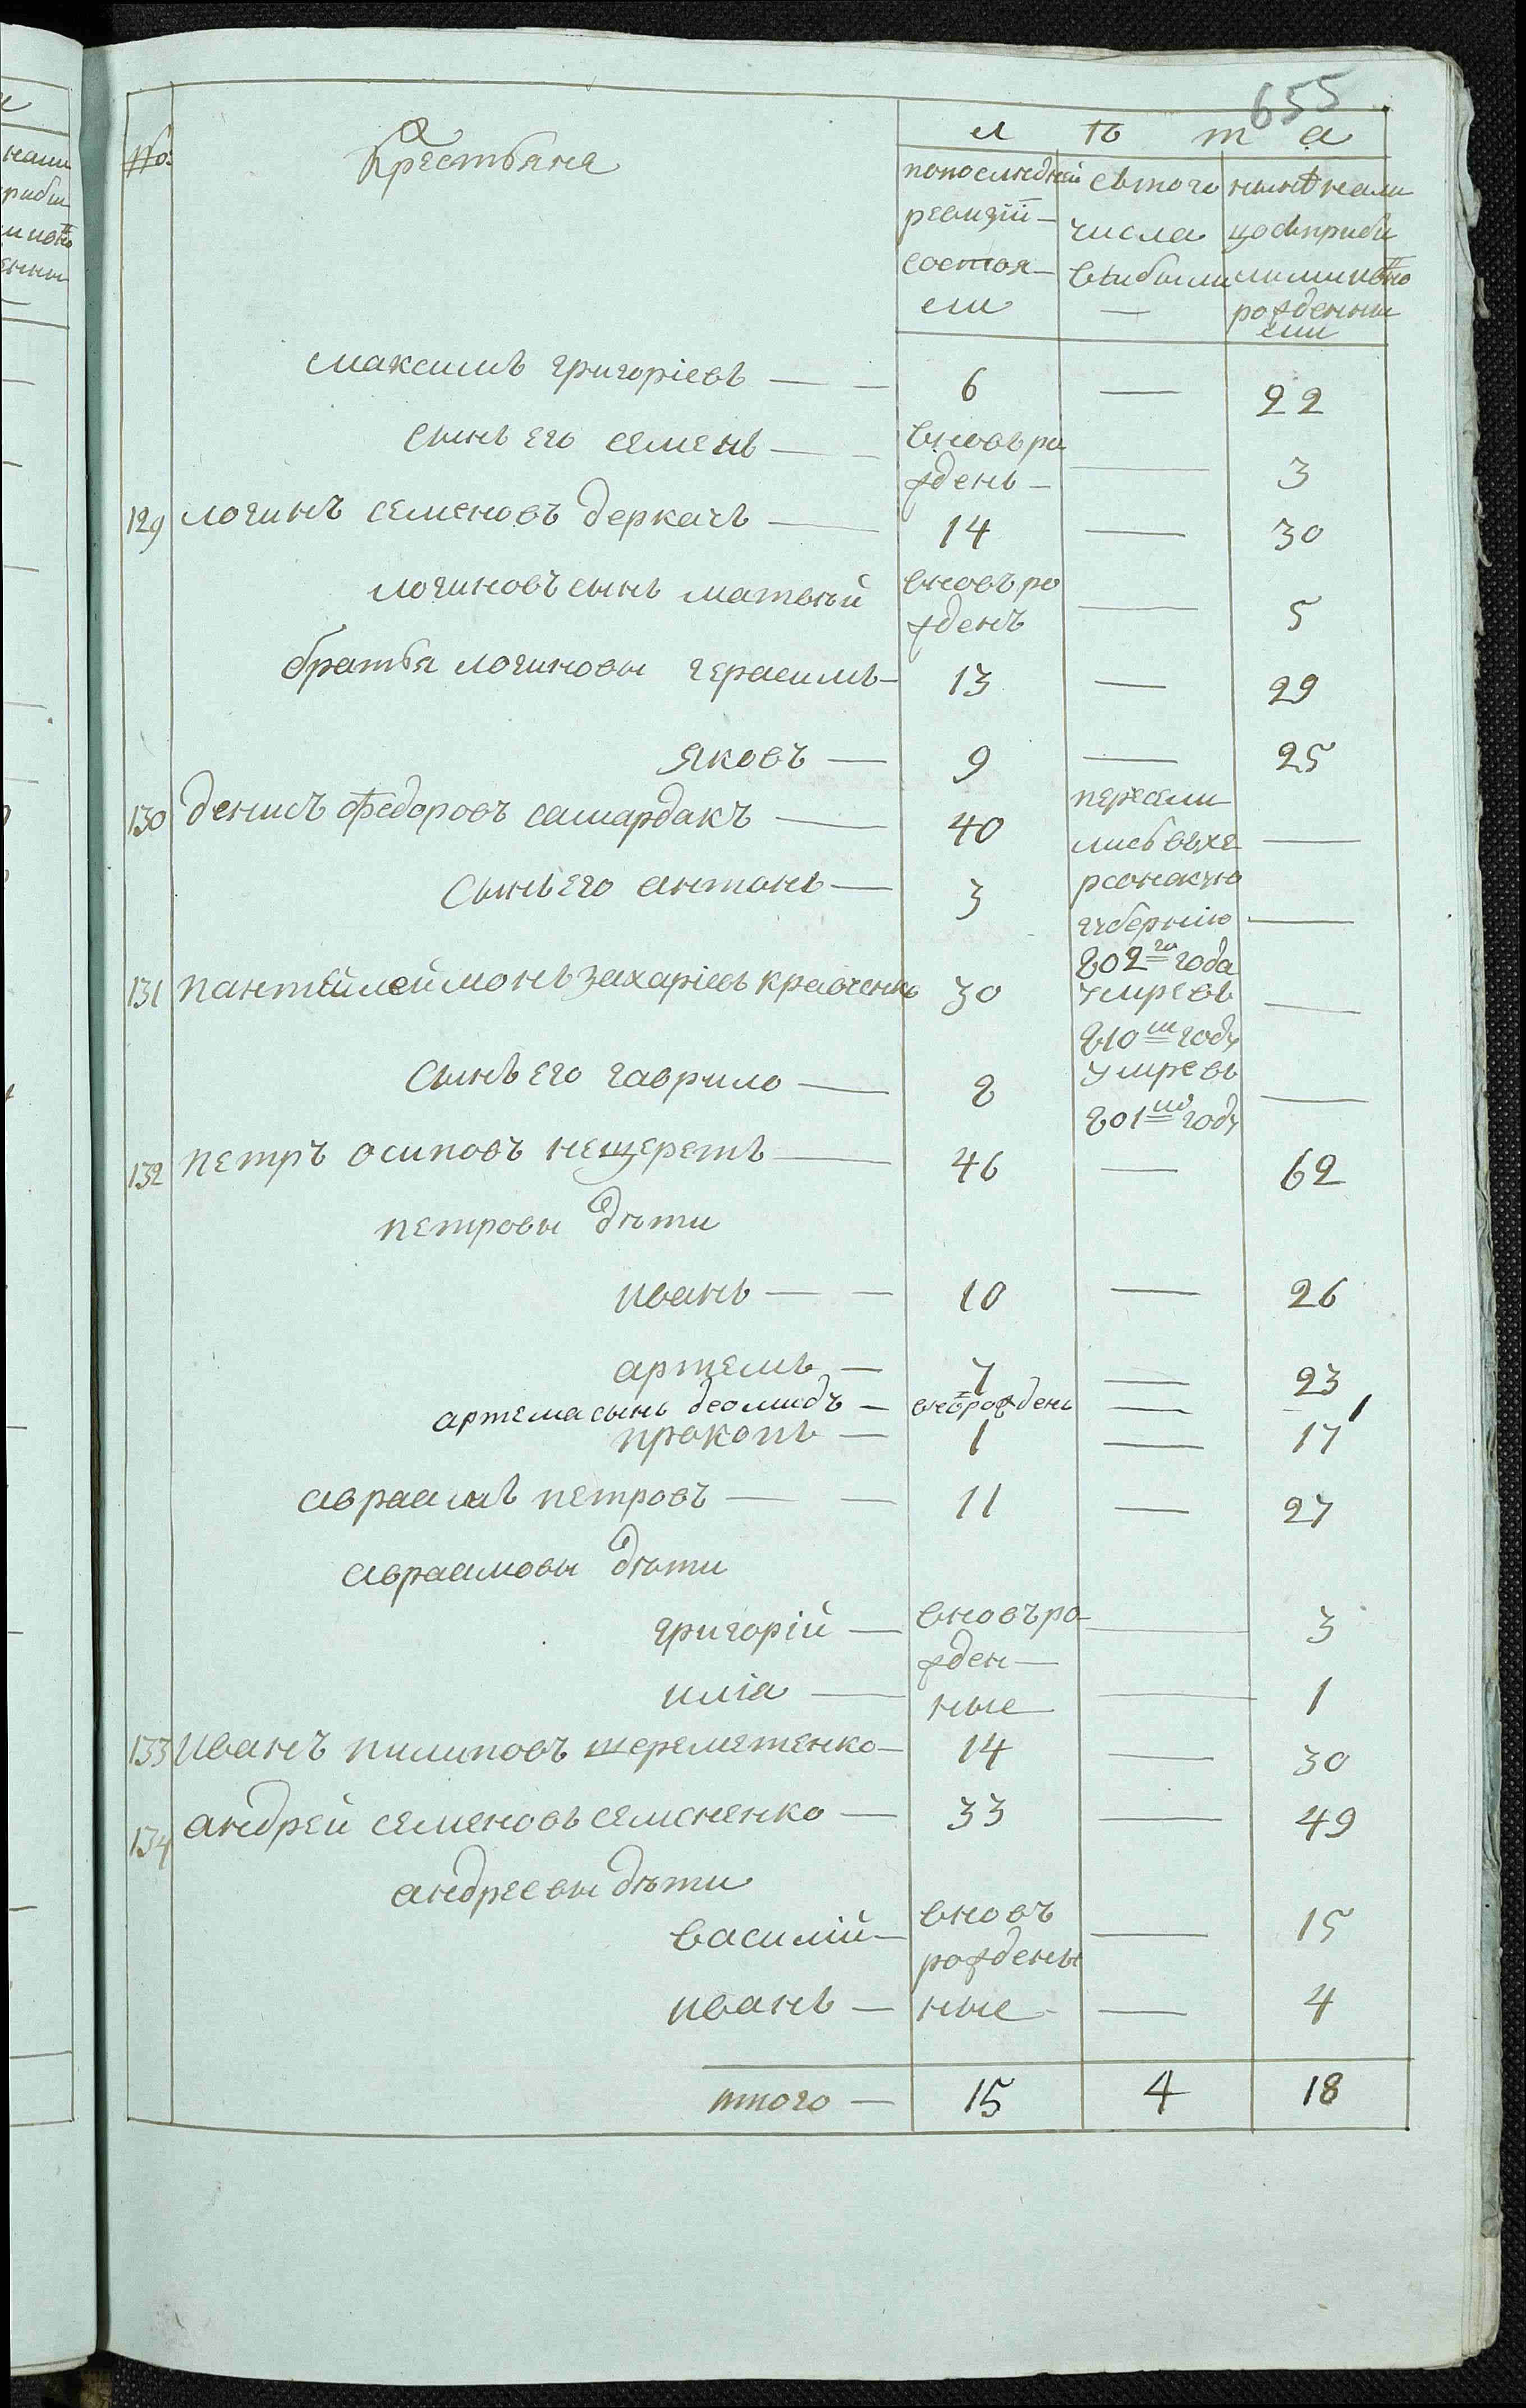 655
№:
Крестьяне
л ѣ т а
попоследней ревизiи состояли
сътого числа выбыли
нынѣ налицо съприбылыми и новорожденными
максимъ григорiевъ — — 6 — 22
сынъ его семенъ — — вновь рожденъ — — 3
129 логинъ семеновъ деркачъ — 14 — 30
логиновъ сынъ матвѣй вновь рожденъ — 5
братья логиновы герасимъ — 13 — 29
яковъ — 9 — 25
130 денисъ федоровъ самардакъ — 40 переселились въхерсонскую губернiю 802го года —
сынъ его антонъ — 3 —
131 пантелеймонъ захарiевъ кравченко 30 умре въ 810м году —
сынъ его гаврило — 8 умре въ 801м году —
132 петръ осиповъ нещеретъ — 46 — 62
петровы дѣти
иванъ — — 10 — 26
артемъ — 7 — 23
артема сынъ деомидъ — вновѣрожденъ — 1
прокопъ — 1 — 17
авраамъ петровъ — — 11 — 27
авраамовы дѣти
григорiй — вновь рожден — 3
илiа — ные — 1
133 иванъ пилиповъ шереметенко — 14 — 30
134 андрей семеновъ семененко — 33 — 49
андреевы дѣти
василiй — вновь рожден — 15
иванъ — ные — 4
итого — 15 4 18